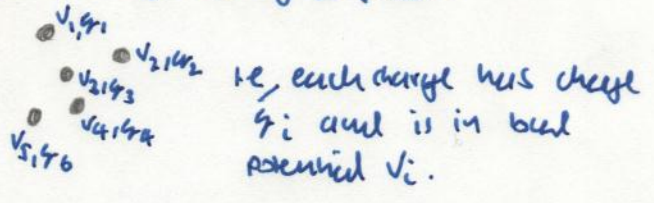 V1,q1
V2,q2
V3,q3
V4,q4
V5,q6
ie, each charge has charge
qi and is in
potential Vi.